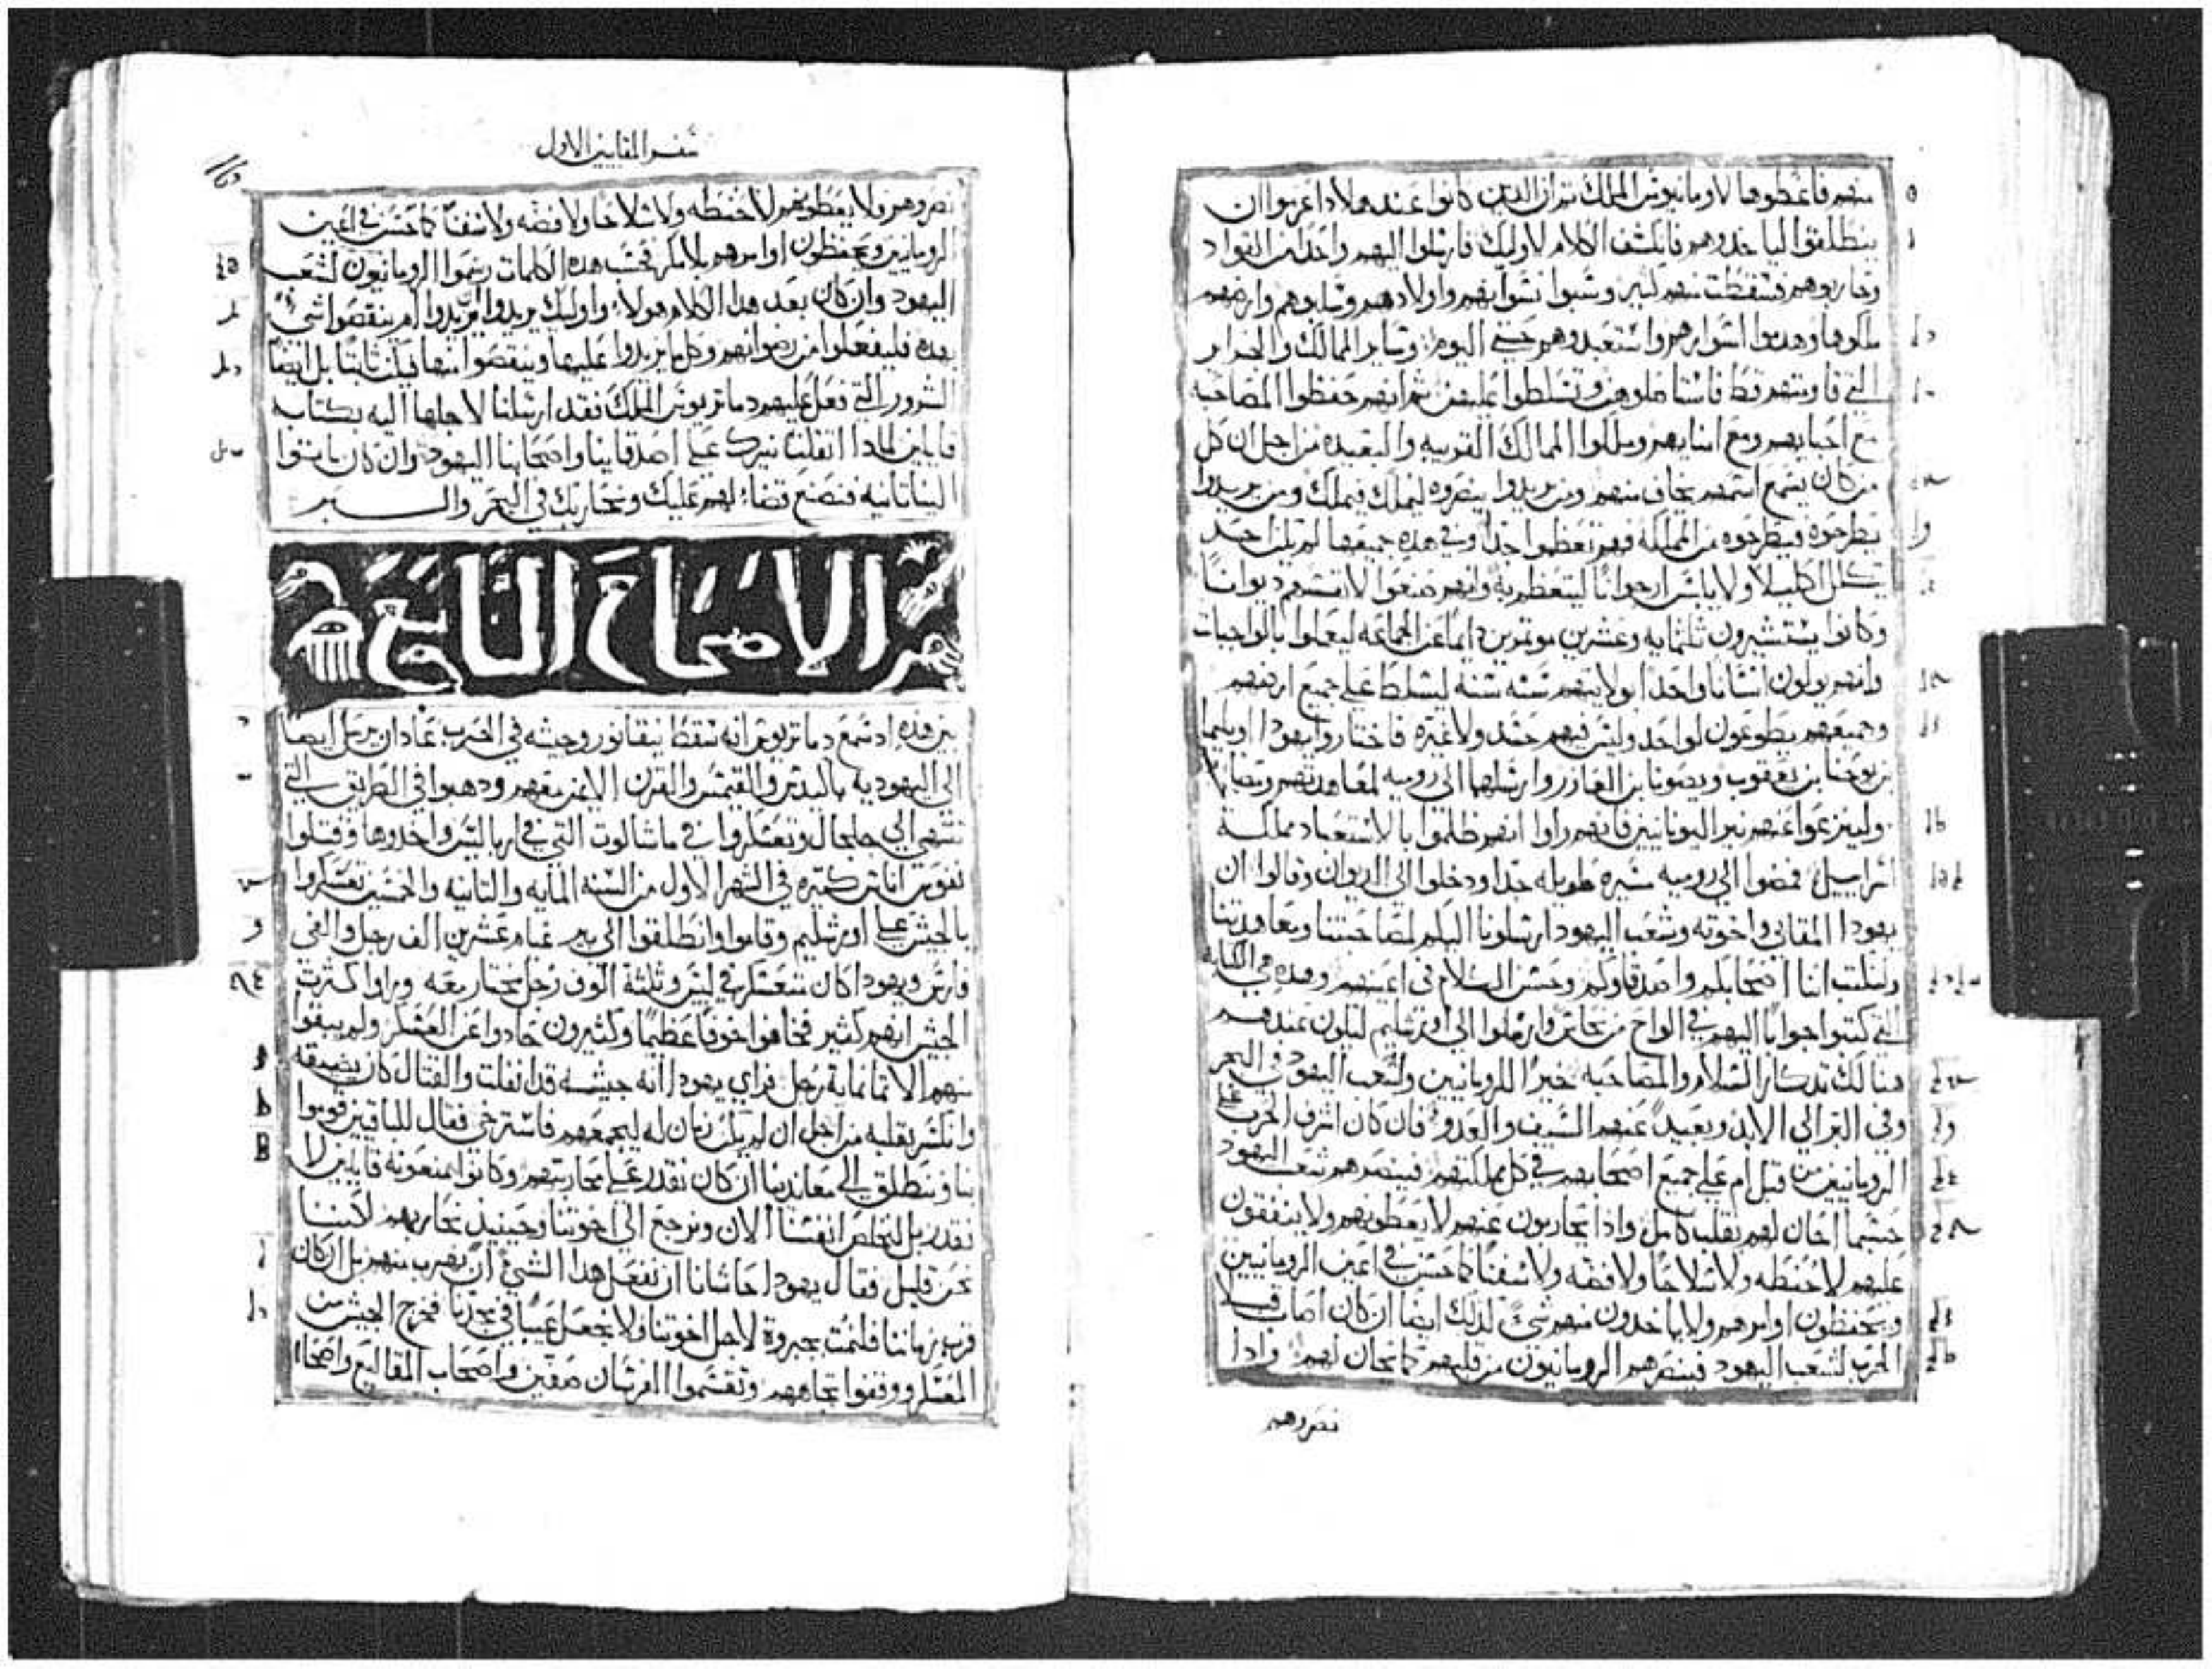 منهم فاعطوها لاومانيوس الملك ثم ان الذين كانوا عند هلادا عزموا ان
ينطلقوا لياخدوهم فانكشف الكلام لاوليك فارسلوا اليهم واحدا من القواد
وحاربوهم فسقطت منهم كثير وسبوا نسوانهم واولادهم وسابوهم وارضهم
ملكوها وهدموا اسوارهم واستعبدوهم حتي اليوم وساير الممالك والجزاير
التي قاومتهم قط فاستاصلوهن وتسلطوا عليهن ثم انهم حفظوا المصاحبه
مع احبابهم ومع وملكوا الممالك القريبه والبعيده من اجل ان كل
من كان يسمع اسمهم يخاف منهم ومن يريدوا ينصروه ليملك فيملك ومن يريدوا
يطرحوه فيطرحوه من المملكه فهم تعظموا جدا وفي هده جميعها لم يكن احد
تكلل اكليلا ولا يلبس ارجوانا ليتعظم به وانهم صنعوا لانفسهم ديوانا
وكانوا يستشيرون ثلثمايه وعشرين موتمرين دايما عن الجماعه ليعملوا بالواجبات
وانهم يولون انسانا واحدا بولايتهم سنه سنه ليسلط علي جميع ارضهم
وجميعهم يطوعون لواحد وليس فيهم حسد ولا غيره فاختار يهودا اوبليما
بن يوحنا بن يعقوب ويصونا بن العازر وارسلهما الي روميه لمعاهدتهم
ولينزعوا عنهم نير اليونانيين فانهم راوا انهم ظلموا بالاستعباد مملكة
اسراييل فمضوا الي روميه سيره طويله جدا ودخلوا الي الديوان وقالوا ان
يهودا المقابي واخوته وشعب اليهود ارسلونا اليكم لمصاحبتنا ومعاهدتنا
ولنكتب اننا اصحابكم واصدقاوكم وحسن السلام في اعينهم وهده هي الكتابه
التي كتبوا جوابا اليهم في الواح من نحاس وارسلوا الي اورشليم لتكون عندهم
هنالك تدكار السلام والمصاحبه خيرا للرومانيين ولشعب اليهود في البحر
وفي البر الي الابد وبعيدا عنهم السيف والعدو فان كان اشرف الحرب
الرومانيين من قبل ام علي جميع اصحابهم في كل مملكتهم فينصرهم شعب اليهود
حسبما الحان لهم بقلب كامل وادا يحاربون عنهم لا يعطونهم ولا ينفقون
عليهم لا حنطه ولا سلاحا ولا فضه ولا سفنا كما حسن في اعين الرومانيين
ويحفظون اوامرهم ولا ياخدون منهم شي كدلك ايضا ان كان اصاب قبلا
الحرب لشعب اليهود فينصرهم الرومانيون من قلبهم كما يحان لهم وادا
نصروهم
سفر المقابيين الاول
نصروهم ولا يعطونهم لا حنطه ولا سلاحا ولا فضه ولا سفنا كما حسن في اعين
الرومانيين ويحفظون اوامرهم بلا مكر فحسب هده الكلمات رسموا الرومانيون لشعب
اليهود وان كان بعد هدا الكلام هولاء واوليك يريدوا يزيدوا ام ينقصوا شي
بهده فليفعلوا من رضوانهم وكل ما يزيدوا عليها وينقصوا منها فيكن ثابتا بل ايضا
الشرور التي فعل عليهم دماتريوس الملك فقد ارسلنا لاجلها اليه بكتاب
قايلين لمادا اتقلت نيرك علي اصدقاينا واصحابنا اليهود وان كان ياتوا
الينا ثانيه فنصنع قضاء لهم عليك ونحاربك في البحر والبر
الاصحاح التاسع
بين هده اد سمع دماتريوس انه سقط نيقانور وجيشه في الحرب عاد ان يرسل ايضا
الي اليهوديه باكيدس والقيمس والقرن الايمن معهم ودهبوا في الطريق التي
تنتهي الي جلجال وتعسكروا في ماسالوت التي في اربالس واخدوها وقتلوا
نفوس اناس كثيره في الشهر الاول من السنه المايه والثانيه والخمسين تعسكروا
بالجيش علي اورشليم وقاموا وانطلقوا الي بير عشرين الف رجل والفي
فارس ويهودا كان متعسكر في ليس وثلثة الوف رجل مختار معه وراوا كثرت
الجيش انهم كثير فخافوا خوفا عظيما وكثيرون حادوا عن العسكر ولم يبقوا
منهم الا تمانماية رجل فراي يهودا انه جيشه قد انفلت والقتال كان يضيقه
وانكسر بقلبه من اجل ان لم يكن زمان له ليجمعهم فاسترخي فقال للباقيين قوموا
بنا وننطلق الي معاندينا ان كان نقدر علي محاربتهم وكانوا يمنعونه قايلين لا
نقدر بل لنخلص انفسنا الان ونرجع الي اخوتنا وحينيد نحاربهم لاننا
نحن قليل فقال يهودا حاشانا ان نفعل هدا الشي ان نهرب منهم بل ان كان
قرب زماننا فلنمت بجبروة لاجل اخوتنا ولا نجعل عيبا في مجدنا فخرج الجيش من
المعسكر ووقفوا تجاههم وتقسموا الفرسان صفين واصحاب المقاليع واصحاب